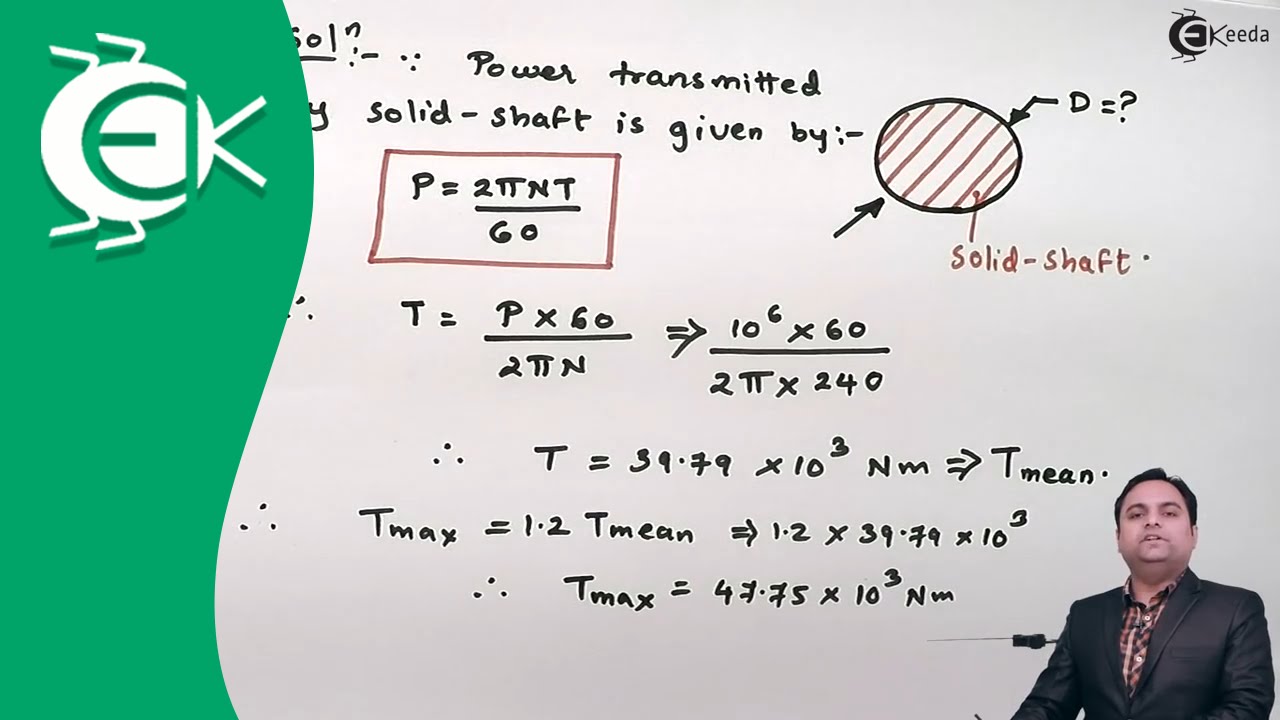 EK
Ekeeda
Solⁿ :- ∵ Power transmitted
y solid-shaft is given by:-
D = ?
P = 2πNT / 60
solid-shaft.
∴ T = P × 60 / 2πN ⇒ 10⁶ × 60 / 2π × 240
∴ T = 39.79 × 10³ Nm ⇒ Tmean.
∴ Tmax = 1.2 Tmean ⇒ 1.2 × 39.79 × 10³
∴ Tmax = 47.75 × 10³ Nm